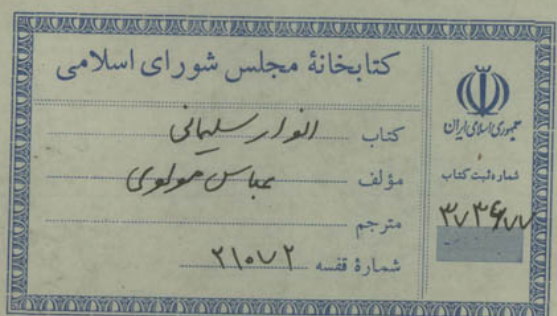 کتابخانهٔ مجلس شورای اسلامی
کتاب انوار سلیمانی
مؤلف عباس مولوی
مترجم
شمارهٔ قفسه ۲۱۰۷۲
جمهوری اسلامی ایران
شماره ثبت کتاب